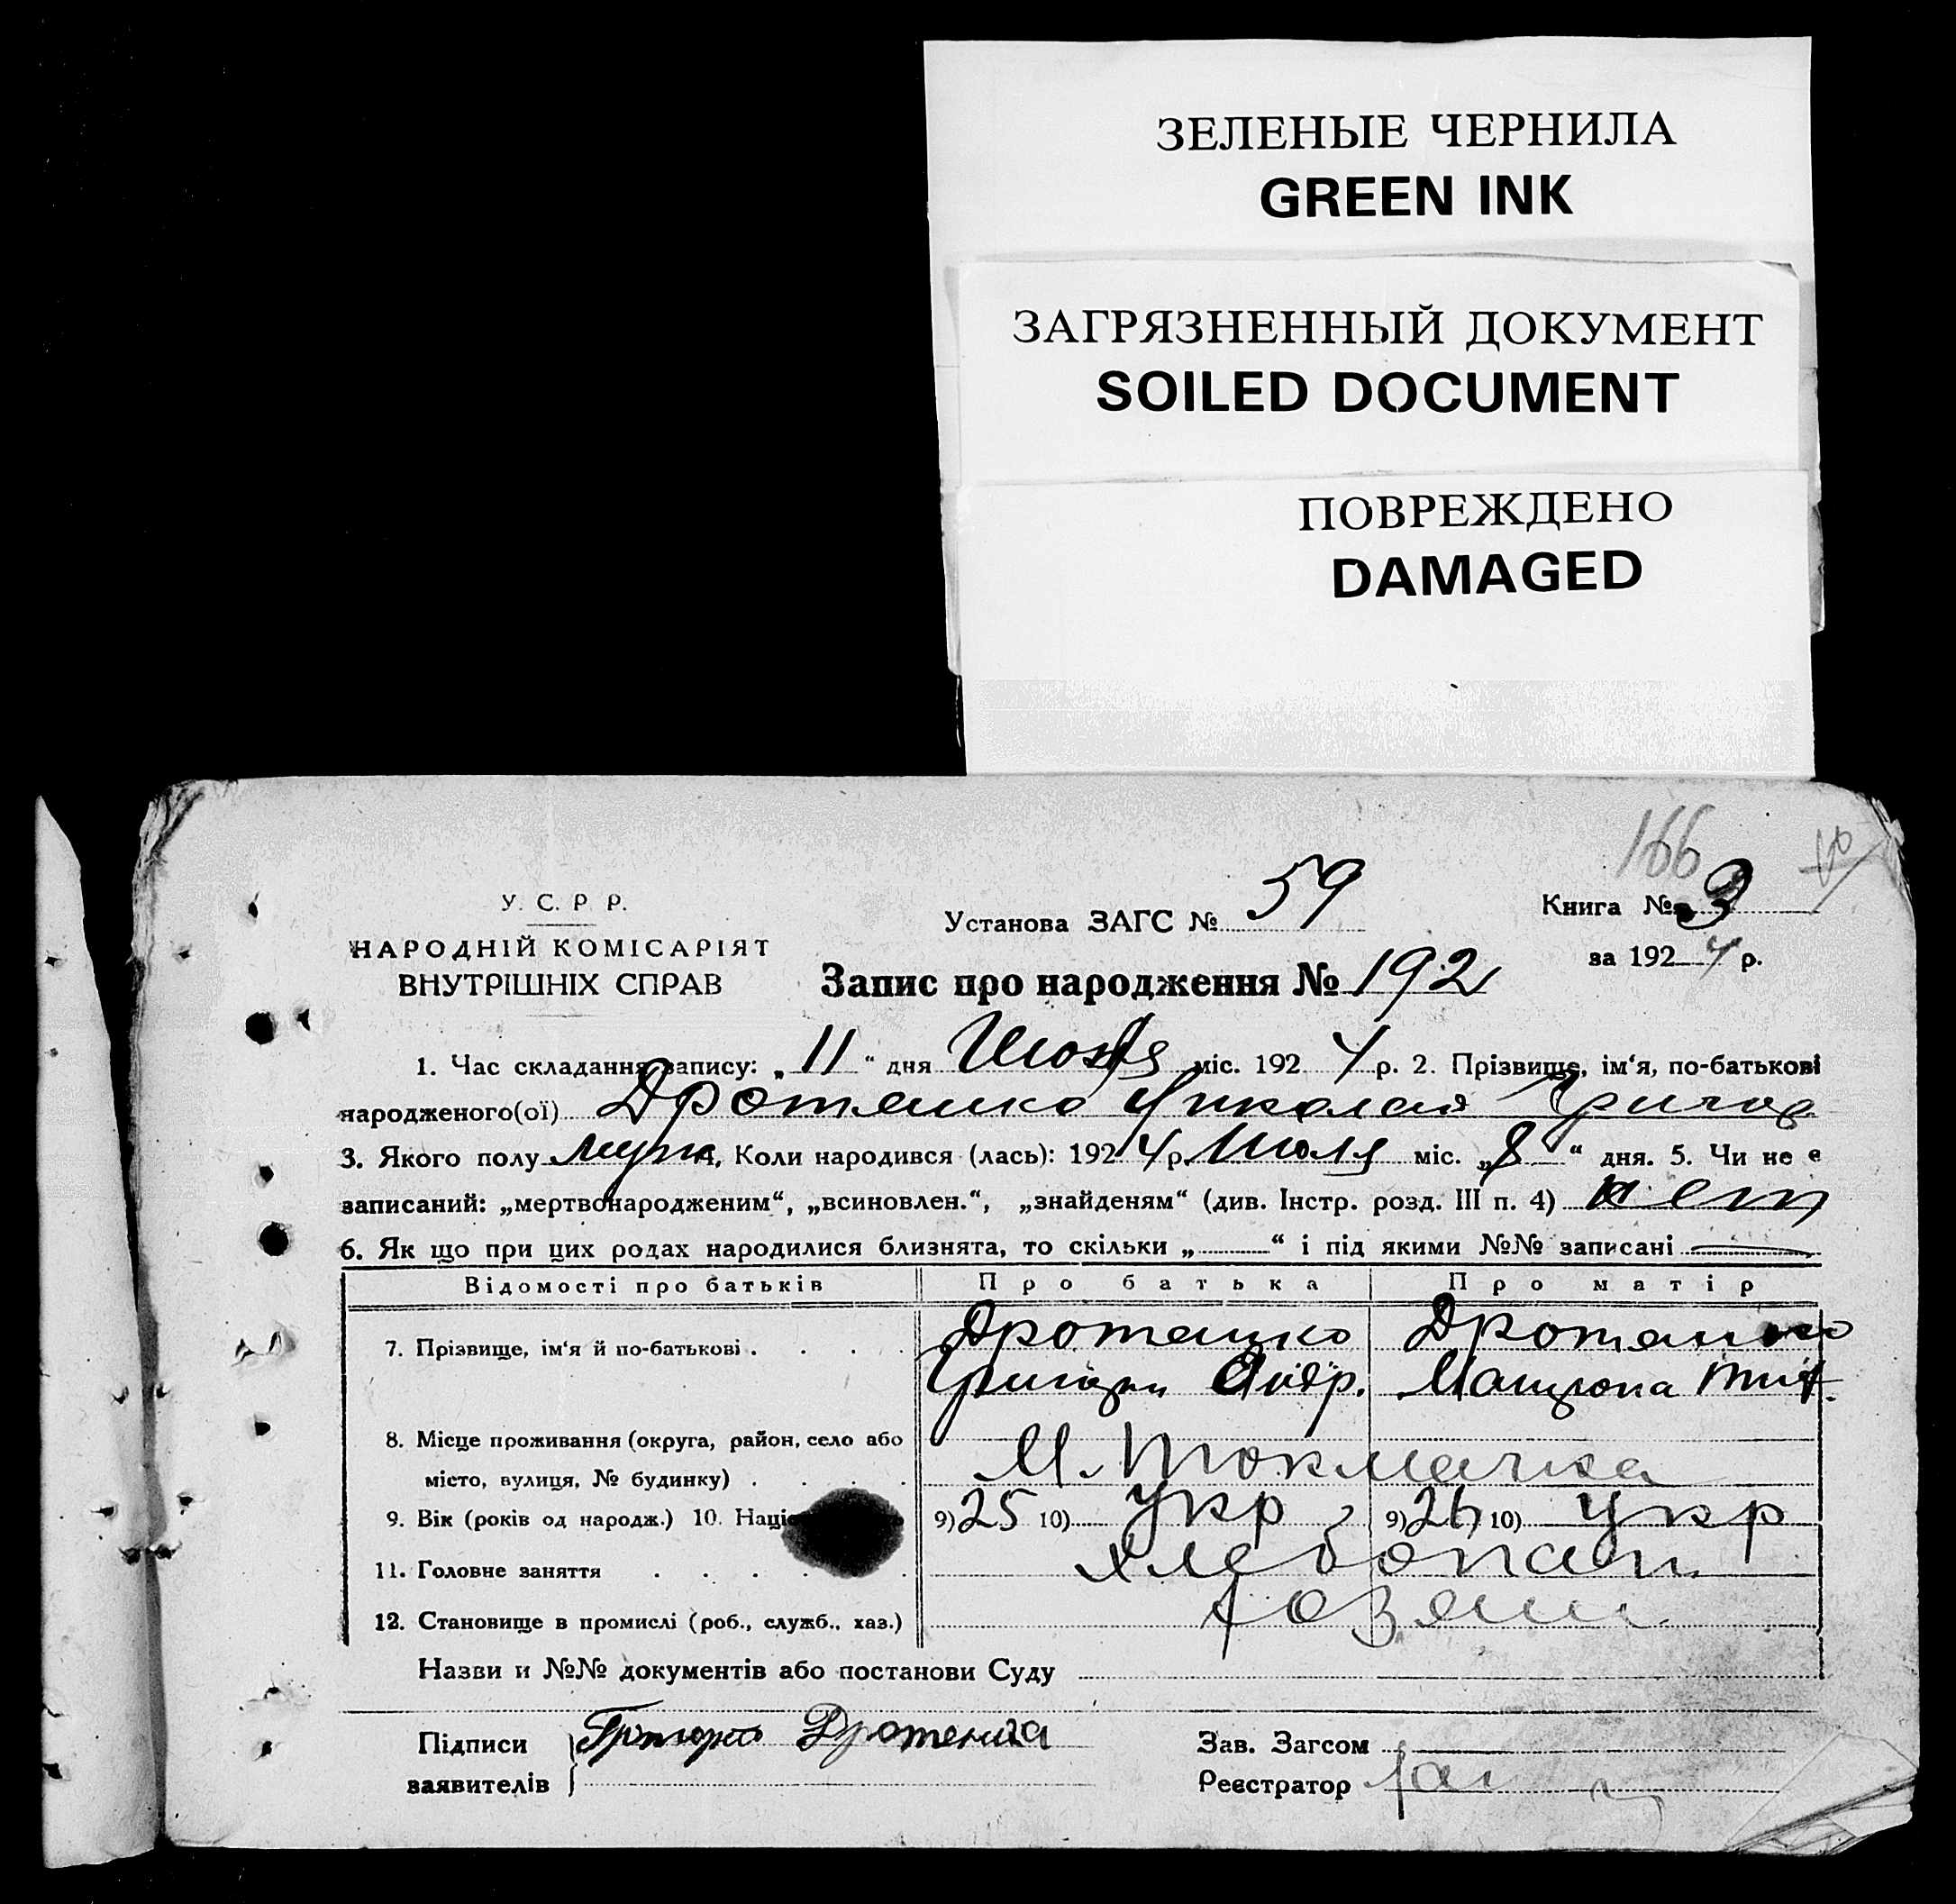 ЗЕЛЕНЫЕ ЧЕРНИЛА
GREEN INK
ЗАГРЯЗНЕННЫЙ ДОКУМЕНТ
SOILED DOCUMENT
ПОВРЕЖДЕНО
DAMAGED
166
У. С. Р. Р.
Установа ЗАГС № 59
Книга № 3
НАРОДНІЙ КОМІСАРІЯТ
ВНУТРІШНІХ СПРАВ
за 1924 р.
Запис про народження № 192
1. Час складання запису: „11“ дня Июля міс. 1924 р. 2. Прізвище, ім‘я, по-батькові
народженого(ої) Дротенко Николая Григор
3. Якого полу муж 4. Коли народився (лась): 1924 р. Июля міс. „8“ дня. 5. Чи не є
записаний: „мертвонародженим“, „всиновлен.“, „знайденям“ (див. Інстр. розд. III п. 4) нет
6. Як що при цих родах народилися близнята, то скільки „ “ і під якими №№ записані
Відомості про батьків Про батька Про матір
7. Прізвище, ім‘я й по-батькові Дротенко Дротенко
Григори Андр.
8. Місце проживання (округа, район, село або
місто, вулиця, № будинку) М. Токмачка
9. Вік (років од народж.) 10. Наці 9) 25 10) Укр 9) 26 10) Укр
11. Головне заняття хлебопаш.
12. Становище в промислі (роб., служб., хаз.) хозяин
Назви и №№ документів або постанови Суду
Підписи Григорий Дротенка Зав. Загсом
заявителів Реєстратор